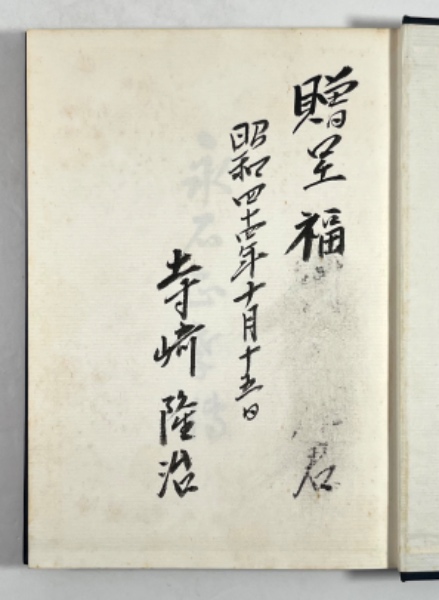 贈呈 福 君
昭和四十七年十月十五日
寺崎 隆治